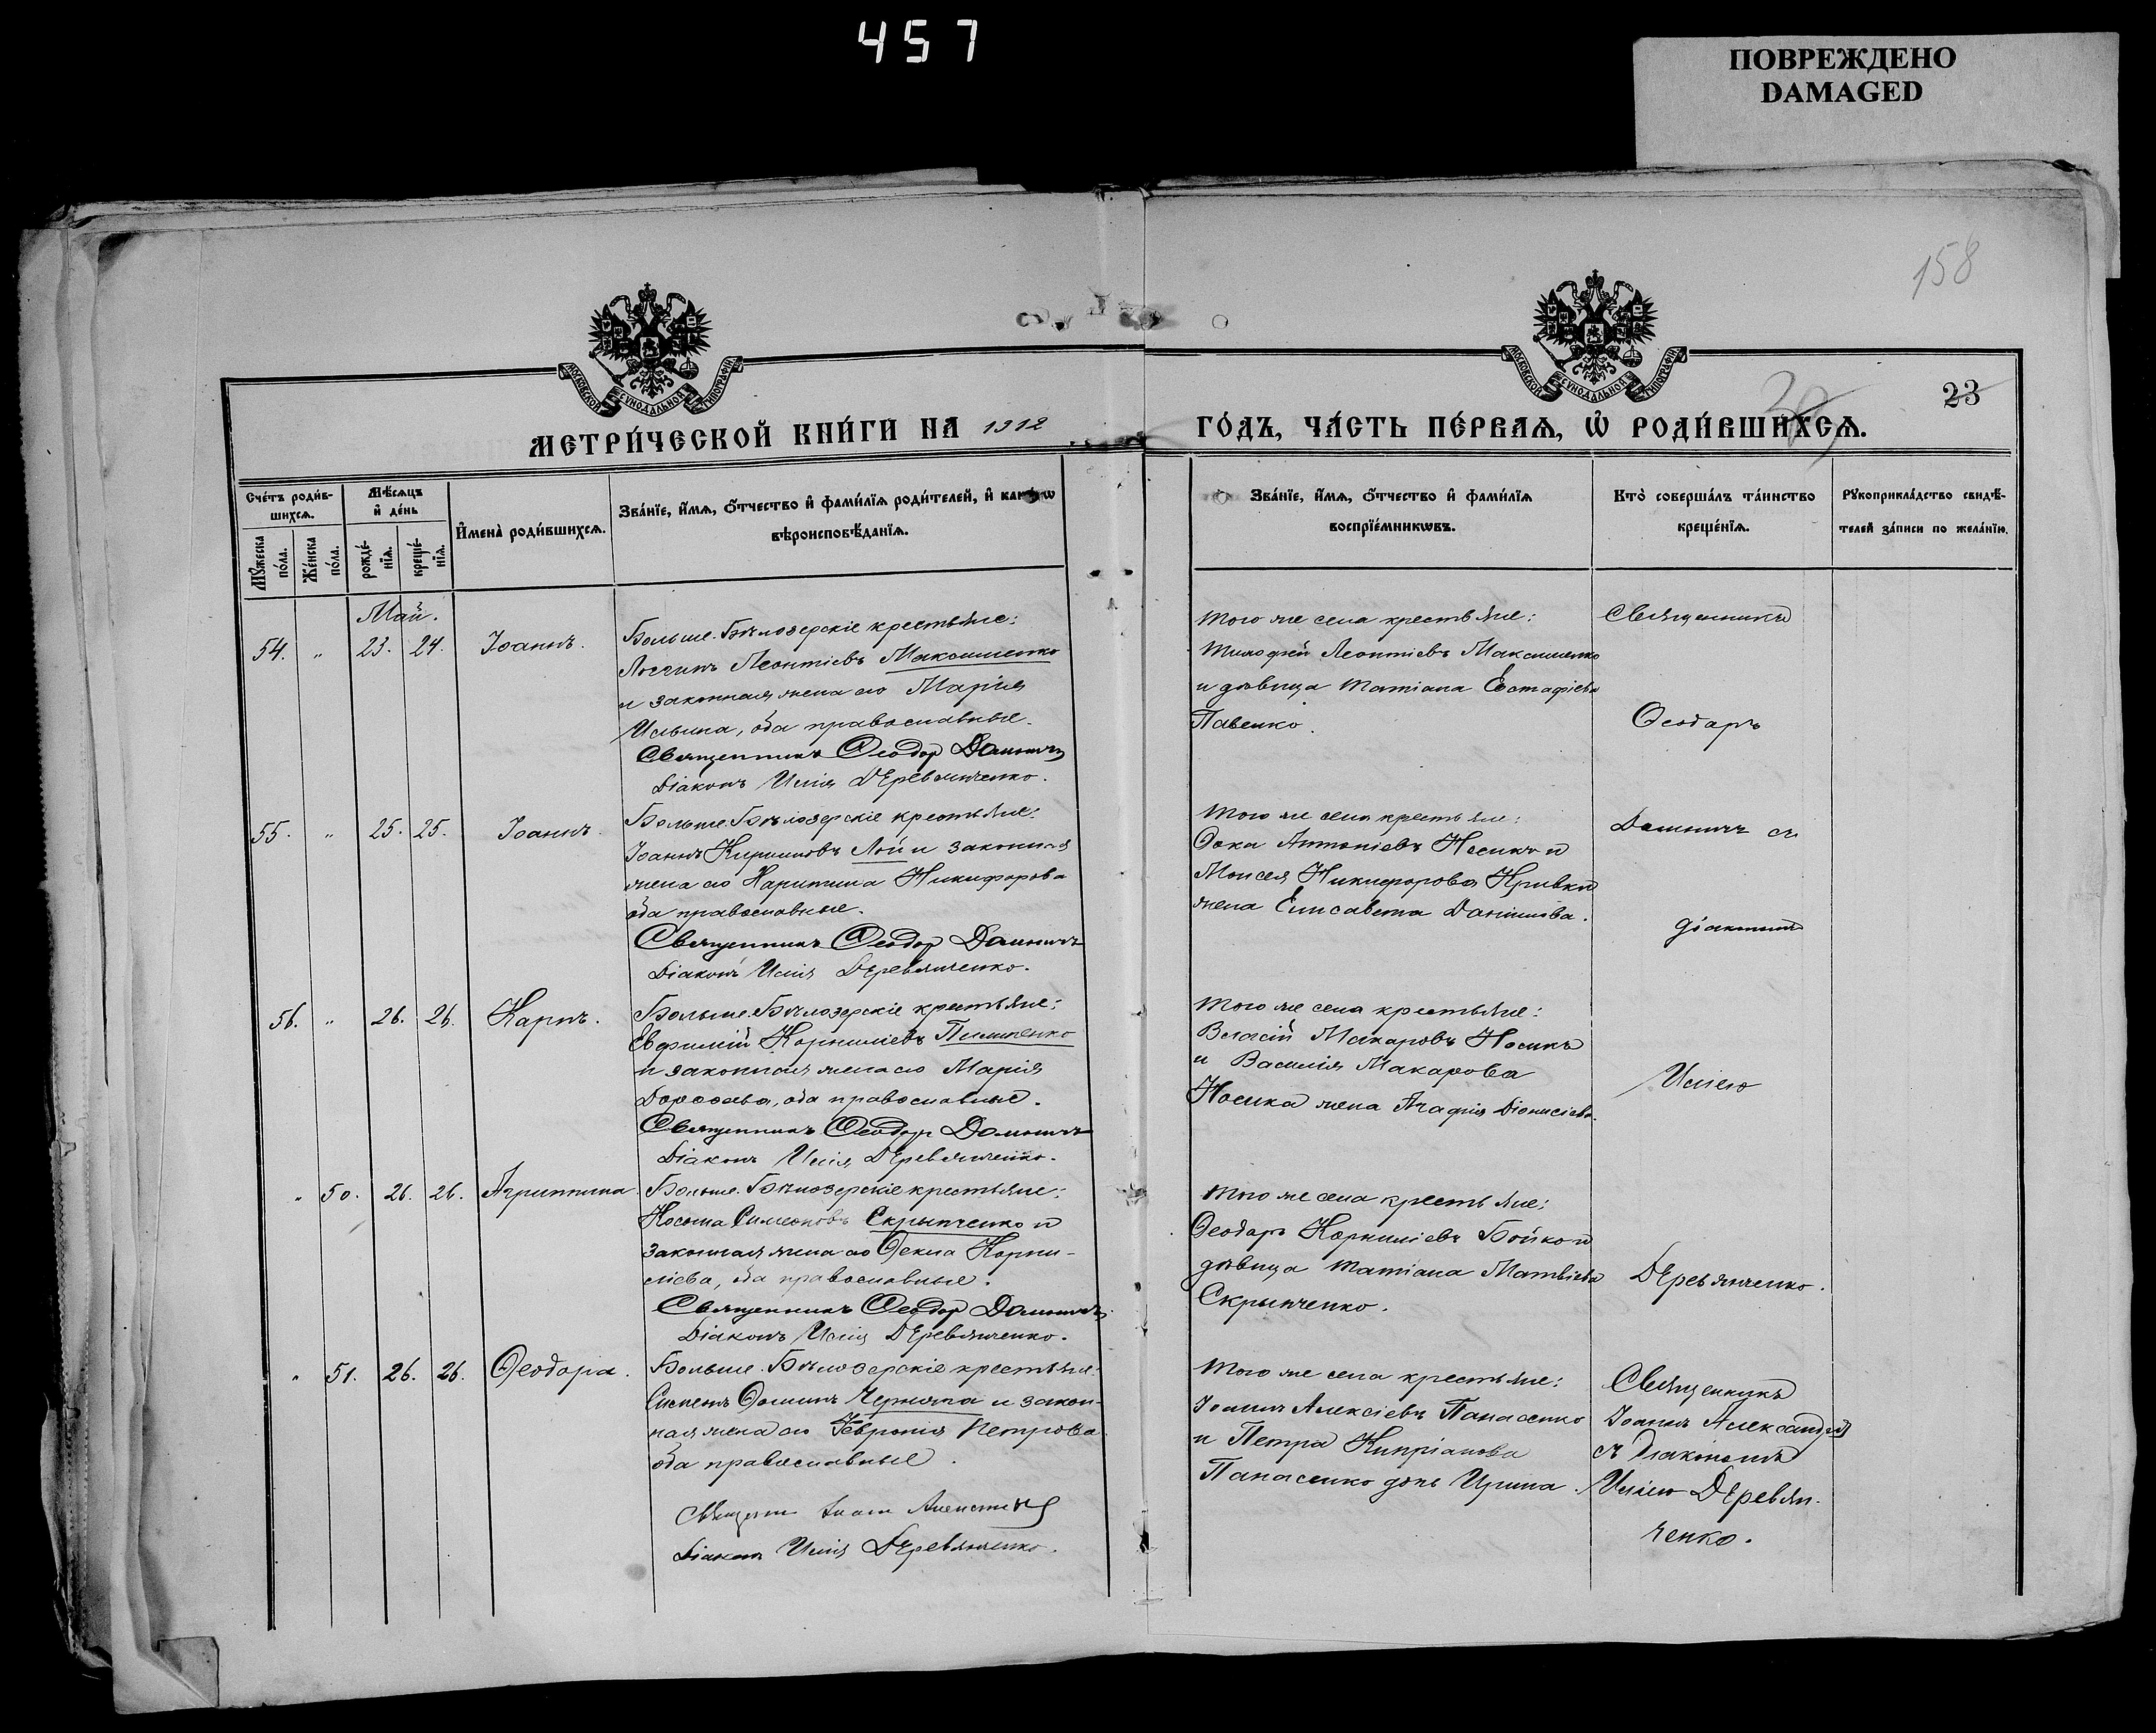 457
ПОВРЕЖДЕНО
DAMAGED
158
МОСКОВСКОЙ СѴНОДАЛЬНОЙ ТИПОГРАФІИ
МОСКОВСКОЙ СѴНОДАЛЬНОЙ ТИПОГРАФІИ
23
МЕТРИ́ЧЕСКОЙ КНИ́ГИ НА 1912
ГО́ДЪ, ЧА́СТЬ ПЕ́РВАѦ, Ѡ҆ РОДИ́ВШИХСѦ.
Сче́тъ роди́в-
шихсѧ.
Мѣ́сѧцъ
и҆ де́нь
И҆мена̀ роди́вшихсѧ.
Зва́нїе, и҆́мѧ, ѻ҆́тчество и҆ фами́лїѧ роди́телей, и҆
вѣроисповѣ́данїѧ.
Зва́нїе, и҆́мѧ, ѻ҆́тчество и҆ фами́лїѧ
воспрїе́мникѡвъ.
Кто̀ соверша́лъ та́инство
креще́нїѧ.
Рꙋкоприкла́дство свидѣ́-
телей за́писи по жела́нїю.
Мꙋ́жеска по́ла.
Же́нска по́ла.
рожде́-нїѧ.
креще́-нїѧ.
Май.
54. " 23. 24. Іоаннъ.
Больше-Бѣлозерскіе крестьяне:
Логгинъ Леонтіевъ Максименко
и законная жена его Марія
Ильина, оба православные.
Священникъ Ѳеодор
Діаконъ Илія Деревянченко.
Того же села крестьяне:
Тимоѳей Леонтіевъ Максименко
и дѣвица Татіана Евстафіева
Павенко.
Священникъ
Ѳеодоръ
55. " 25. 25. Іоаннъ.
Больше-Бѣлозерскіе крестьяне:
Іоаннъ Кирилловъ Лой и законная
жена его Харитина Никифорова
оба православные.
Священникъ Ѳеодор
Діаконъ Илія Деревянченко.
Того же села крестьяне:
Ѳока Антоніевъ Носикъ и
Моисея Никифорова Кривка
жена Елисавета Даніилова.
съ
діакономъ
56. " 26. 26. Карпъ.
Больше-Бѣлозерскіе крестьяне:
Евфимій Корниліевъ Пилипенко
и законная жена его Марія
Дороѳеева, оба православные.
Священникъ Ѳеодор
Діаконъ Илія Деревянченко.
Того же села крестьяне:
Власій Макаровъ Носикъ
и Василія Макарова
Носика жена Агафія Діонисіева.
Иліею
" 50. 26. 26. Агриппина.
Больше-Бѣлозерскіе крестьяне:
Косьма Симеоновъ Скрыпченко и
законная жена его Ѳекла Корни-
ліева, оба православные.
Священникъ Ѳеодор
Діаконъ Илія Деревянченко.
Того же села крестьяне:
Ѳеодоръ Корниліевъ Бойко и
дѣвица Татіана Матвіева
Скрыпченко.
Деревянченко.
" 51. 26. 26. Ѳеодора.
Больше-Бѣлозерскіе крестьяне:
Симеонъ Ѳоминъ и закон-
ная жена его Февронія Петрова
оба православные.
Діаконъ Илія Деревянченко.
Того же села крестьяне:
Іоаннъ Алексіевъ Панасенко
и Петра Кипріанова
Панасенко дочь Ирина.
Священникъ
Іоаннъ
съ діакономъ
Иліею Деревян-
ченко.